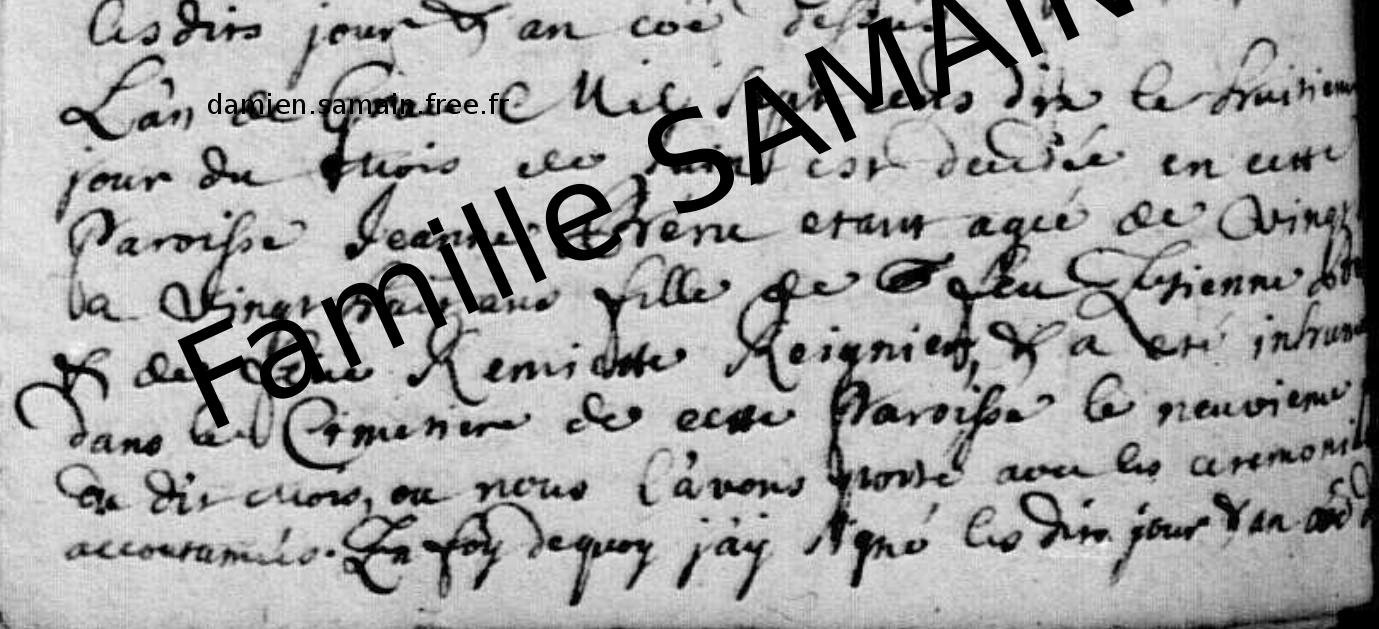 lesdits jour & an coē dessus
L'an de Grace Mil sept cens dix le huitiem
jour du mois de est decedée en cette
Paroisse Jeanne etant ageé de Vingt
a Vingt huit ans fille de feu Estienne
& de Remiette Reignier, & a eté inhum
dans le Cimetiere de cette Paroisse le neuvieme
du dit mois, ou nous l'avons porté avec les ceremoni
accoutumées. En foy dequoy j'ay signé lesdits jour & an coē
damien.samain.free.fr
Famille SAMAIN